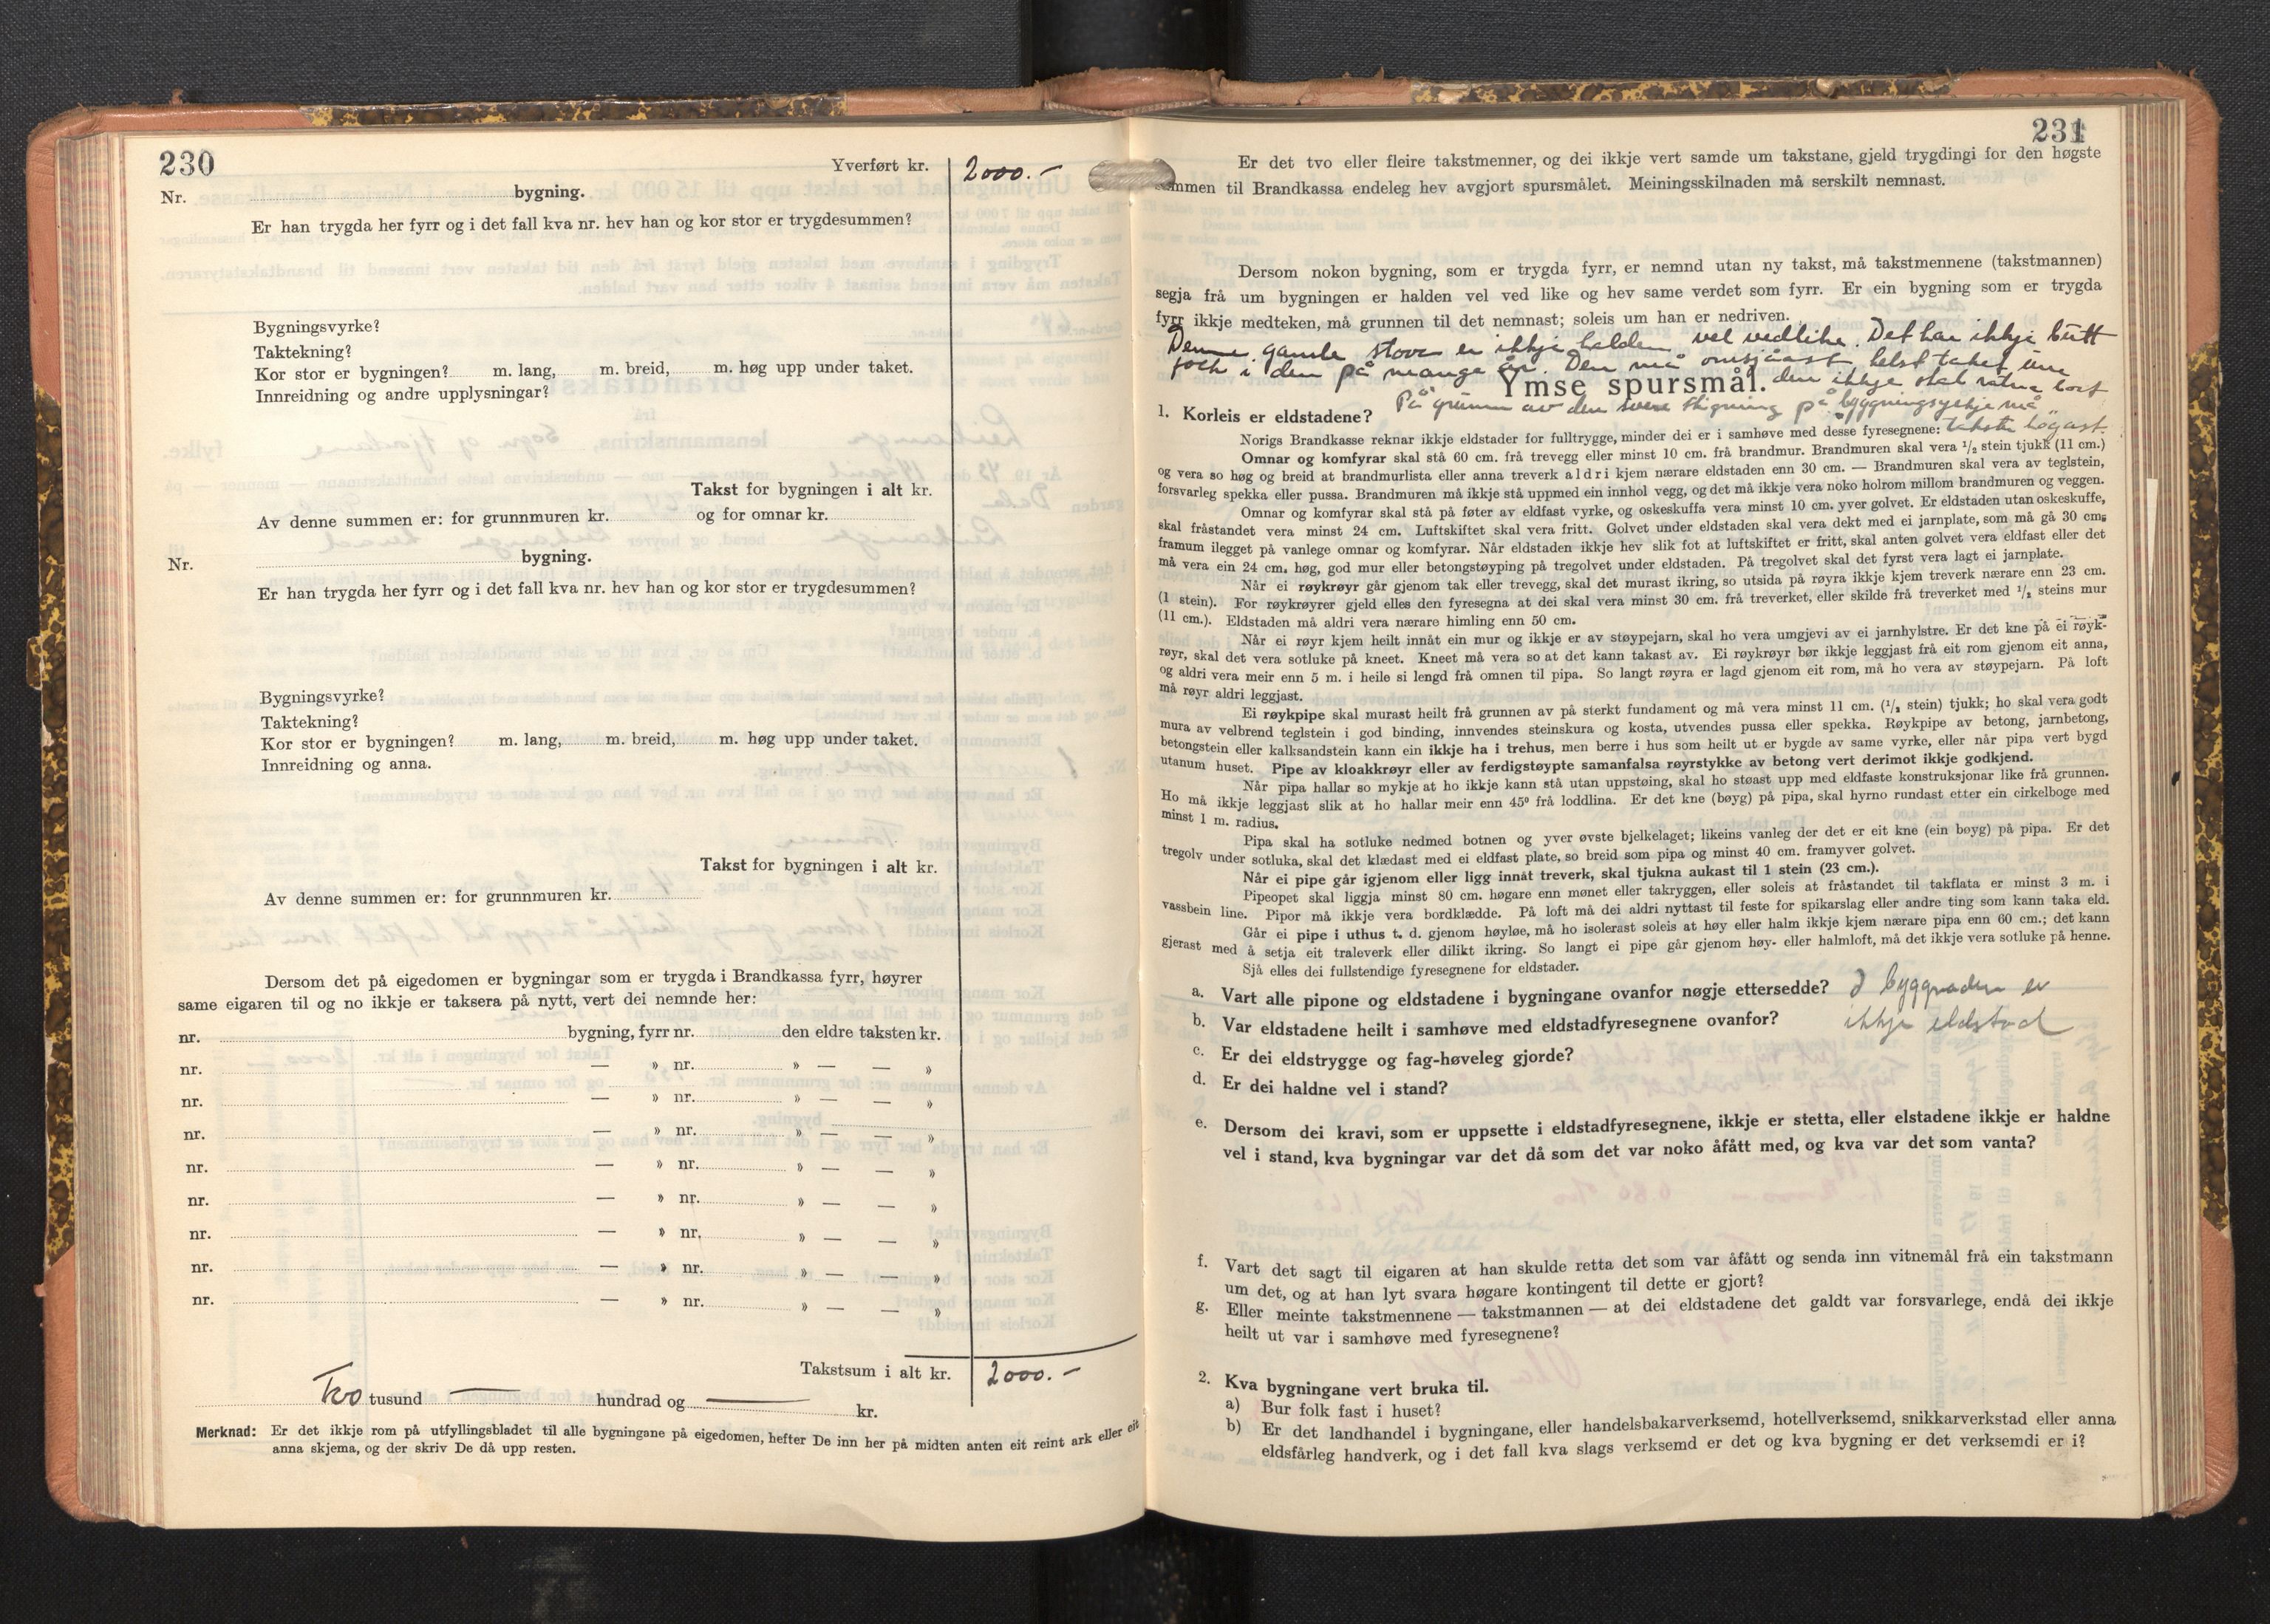 230
Yverført kr. 2000.-
Nr. bygning.
Er han trygda her fyrr og i det fall kva nr. hev han og kor stor er trygdesummen?
Bygningsvyrke?
Taktekning?
Kor stor er bygningen? m. lang, m. breid, m. høg upp under taket.
Innreidning og andre upplysningar?
Takst for bygningen i alt kr.
Av denne summen er: for grunnmuren kr. og for omnar kr.
Nr. bygning.
Er han trygda her fyrr og i det fall kva nr. hev han og kor stor er trygdesummen?
Bygningsvyrke?
Taktekning?
Kor stor er bygningen? m. lang, m. breid, m. høg upp under taket.
Innreidning og anna.
Takst for bygningen i alt kr.
Av denne summen er: for grunnmuren kr.
Dersom det på eigedomen er bygningar som er trygda i Brandkassa fyrr, høyrer
same eigaren til og no ikkje er taksera på nytt, vert dei nemnde her:
nr. bygning, fyrr nr. den eldre taksten kr.
nr. — » nr. » — — »
nr. — » nr. » — — »
nr. — » nr. » — — »
nr. — » nr. » — — »
nr. — » nr. » — — »
nr. — » nr. » — — »
nr. — » nr. » — — »
nr. — » nr. » — — »
Takstsum i alt kr. 2000.-
Tvo tusund — hundrad og — kr.
Merknad: Er det ikkje rom på utfyllingsbladet til alle bygningane på eigedomen, hefter De inn her på midten anten eit reint ark eller eit
anna skjema, og der skriv De då upp resten.
231
Er det tvo eller fleire takstmenner, og dei ikkje vert samde um takstane, gjeld trygdingi for den høgste
summen til Brandkassa endeleg hev avgjort spursmålet. Meiningsskilnaden må serskilt nemnast.
Dersom nokon bygning, som er trygda fyrr, er nemnd utan ny takst, må takstmennene (takstmannen)
segja frå um bygningen er halden vel ved like og hev same verdet som fyrr. Er ein bygning som er trygda
fyrr ikkje medteken, må grunnen til det nemnast; soleis um han er nedriven.
Denne gamle stova er ikkje halden vel vedlike. Det har ikkje butt
folk i den på mange år. Den må omsjåast helst taket um
den ikkje skal rotna bort
Ymse spursmål.
På grunn av den svere stigning på bygningsyrkje må
takste høgast.
1. Korleis er eldstadene?
Norigs Brandkasse reknar ikkje eldstader for fulltrygge, minder dei er i samhøve med desse fyresegnene:
Omnar og komfyrar skal stå 60 cm. frå trevegg eller minst 10 cm. frå brandmur. Brandmuren skal vera 1/2 stein tjukk (11 cm.)
og vera so høg og breid at brandmurlista eller anna treverk aldri kjem nærare eldstaden enn 30 cm. — Brandmuren skal vera av teglstein,
forsvarleg spekka eller pussa. Brandmuren må ikkje stå uppmed ein innhol vegg, og det må ikkje vera noko holrom millom brandmuren og veggen.
Omnar og komfyrar skal stå på føter av eldfast vyrke, og oskeskuffa vera minst 10 cm. yver golvet. Er eldstaden utan oskeskuffe,
skal fråstandet vera minst 24 cm. Luftskiftet skal vera fritt. Golvet under eldstaden skal vera dekt med ei jarnplate, som må gå 30 cm.
framum ilegget på vanlege omnar og komfyrar. Når eldstaden ikkje hev slik fot at luftskiftet er fritt, skal anten golvet vera eldfast eller det
må vera ein 24 cm. høg, god mur eller betongstøyping på tregolvet under eldstaden. På tregolvet skal det fyrst vera lagt ei jarnplate.
Når ei røykrøyr går gjenom tak eller trevegg, skal det murast ikring, so utsida på røyra ikkje kjem treverk nærare enn 23 cm.
(1 stein). For røykrøyrer gjeld elles den fyresegna at dei skal vera minst 30 cm. frå treverket, eller skilde frå treverket med 1/2 steins mur
(11 cm.). Eldstaden må aldri vera nærare himling enn 50 cm.
Når ei røyr kjem heilt innåt ein mur og ikkje er av støypejarn, skal ho vera umgjevi av ei jarnhylstre. Er det kne på ei røyk-
røyr, skal det vera sotluke på kneet. Kneet må vera so at det kann takast av. Ei røykrøyr bør ikkje leggjast frå eit rom gjenom eit anna,
og aldri vera meir enn 5 m. i heile si lengd frå omnen til pipa. So langt røyra er lagd gjenom eit rom, må ho vera av støypejarn. På loft
må røyr aldri leggjast.
Ei røykpipe skal murast heilt frå grunnen av på sterkt fundament og må vera minst 11 cm. (1/2 stein) tjukk; ho skal vera godt
mura av velbrend teglstein i god binding, innvendes steinskura og kosta, utvendes pussa eller spekka. Røykpipe av betong, jarnbetong,
betongstein eller kalksandstein kann ein ikkje ha i trehus, men berre i hus som heilt ut er bygde av same vyrke, eller når pipa vert bygd
utanum huset. Pipe av kloakkrøyr eller av ferdigstøypte samanfalsa røyrstykke av betong vert derimot ikkje godkjend.
Når pipa hallar so mykje at ho ikkje kann stå utan uppstøing, skal ho støast upp med eldfaste konstruksjonar like frå grunnen.
Ho må ikkje leggjast slik at ho hallar meir enn 45° frå loddlina. Er det kne (bøyg) på pipa, skal hyrno rundast etter ein cirkelboge med
minst 1 m. radius.
Pipa skal ha sotluke nedmed botnen og yver øvste bjelkelaget; likeins vanleg der det er eit kne (ein bøyg) på pipa. Er det
tregolv under sotluka, skal det klædast med ei eldfast plate, so breid som pipa og minst 40 cm. framyver golvet.
Når ei pipe går igjenom eller ligg innåt treverk, skal tjukna aukast til 1 stein (23 cm.).
Pipeopet skal liggja minst 80 cm. høgare enn mønet eller takryggen, eller soleis at fråstandet til takflata er minst 3 m. i
vassbein line. Pipor må ikkje vera bordklædde. På loft må dei aldri nyttast til feste for spikarslag eller andre ting som kann taka eld.
Går ei pipe i uthus t. d. gjenom høyløe, må ho isolerast soleis at høy eller halm ikkje kjem nærare pipa enn 60 cm.; det kann
gjerast med å setja eit traleverk eller dilikt ikring. So langt ei pipe går gjenom høy- eller halmloft, må det ikkje vera sotluke på henne.
Sjå elles dei fullstendige fyresegnene for eldstader.
a. Vart alle pipone og eldstadene i bygningane ovanfor nøgje ettersedde? I byggnaden er
b. Var eldstadene heilt i samhøve med eldstadfyresegnene ovanfor? ikkje eldstad
c. Er dei eldstrygge og fag-høveleg gjorde?
d. Er dei haldne vel i stand?
e. Dersom dei kravi, som er uppsette i eldstadfyresegnene, ikkje er stetta, eller elstadene ikkje er haldne
vel i stand, kva bygningar var det då som det var noko åfått med, og kva var det som vanta?
f. Vart det sagt til eigaren at han skulde retta det som var åfått og senda inn vitnemål frå ein takstmann
um det, og at han lyt svara høgare kontingent til dette er gjort?
g. Eller meinte takstmennene — takstmannen — at dei eldstadene det galdt var forsvarlege, endå dei ikkje
heilt ut var i samhøve med fyresegnene?
2. Kva bygningane vert bruka til.
a) Bur folk fast i huset?
b) Er det landhandel i bygningane, eller handelsbakarverksemd, hotellverksemd, snikkarverkstad eller anna
eldsfårleg handverk, og i det fall kva slags verksemd er det og kva bygning er det verksemdi er i?